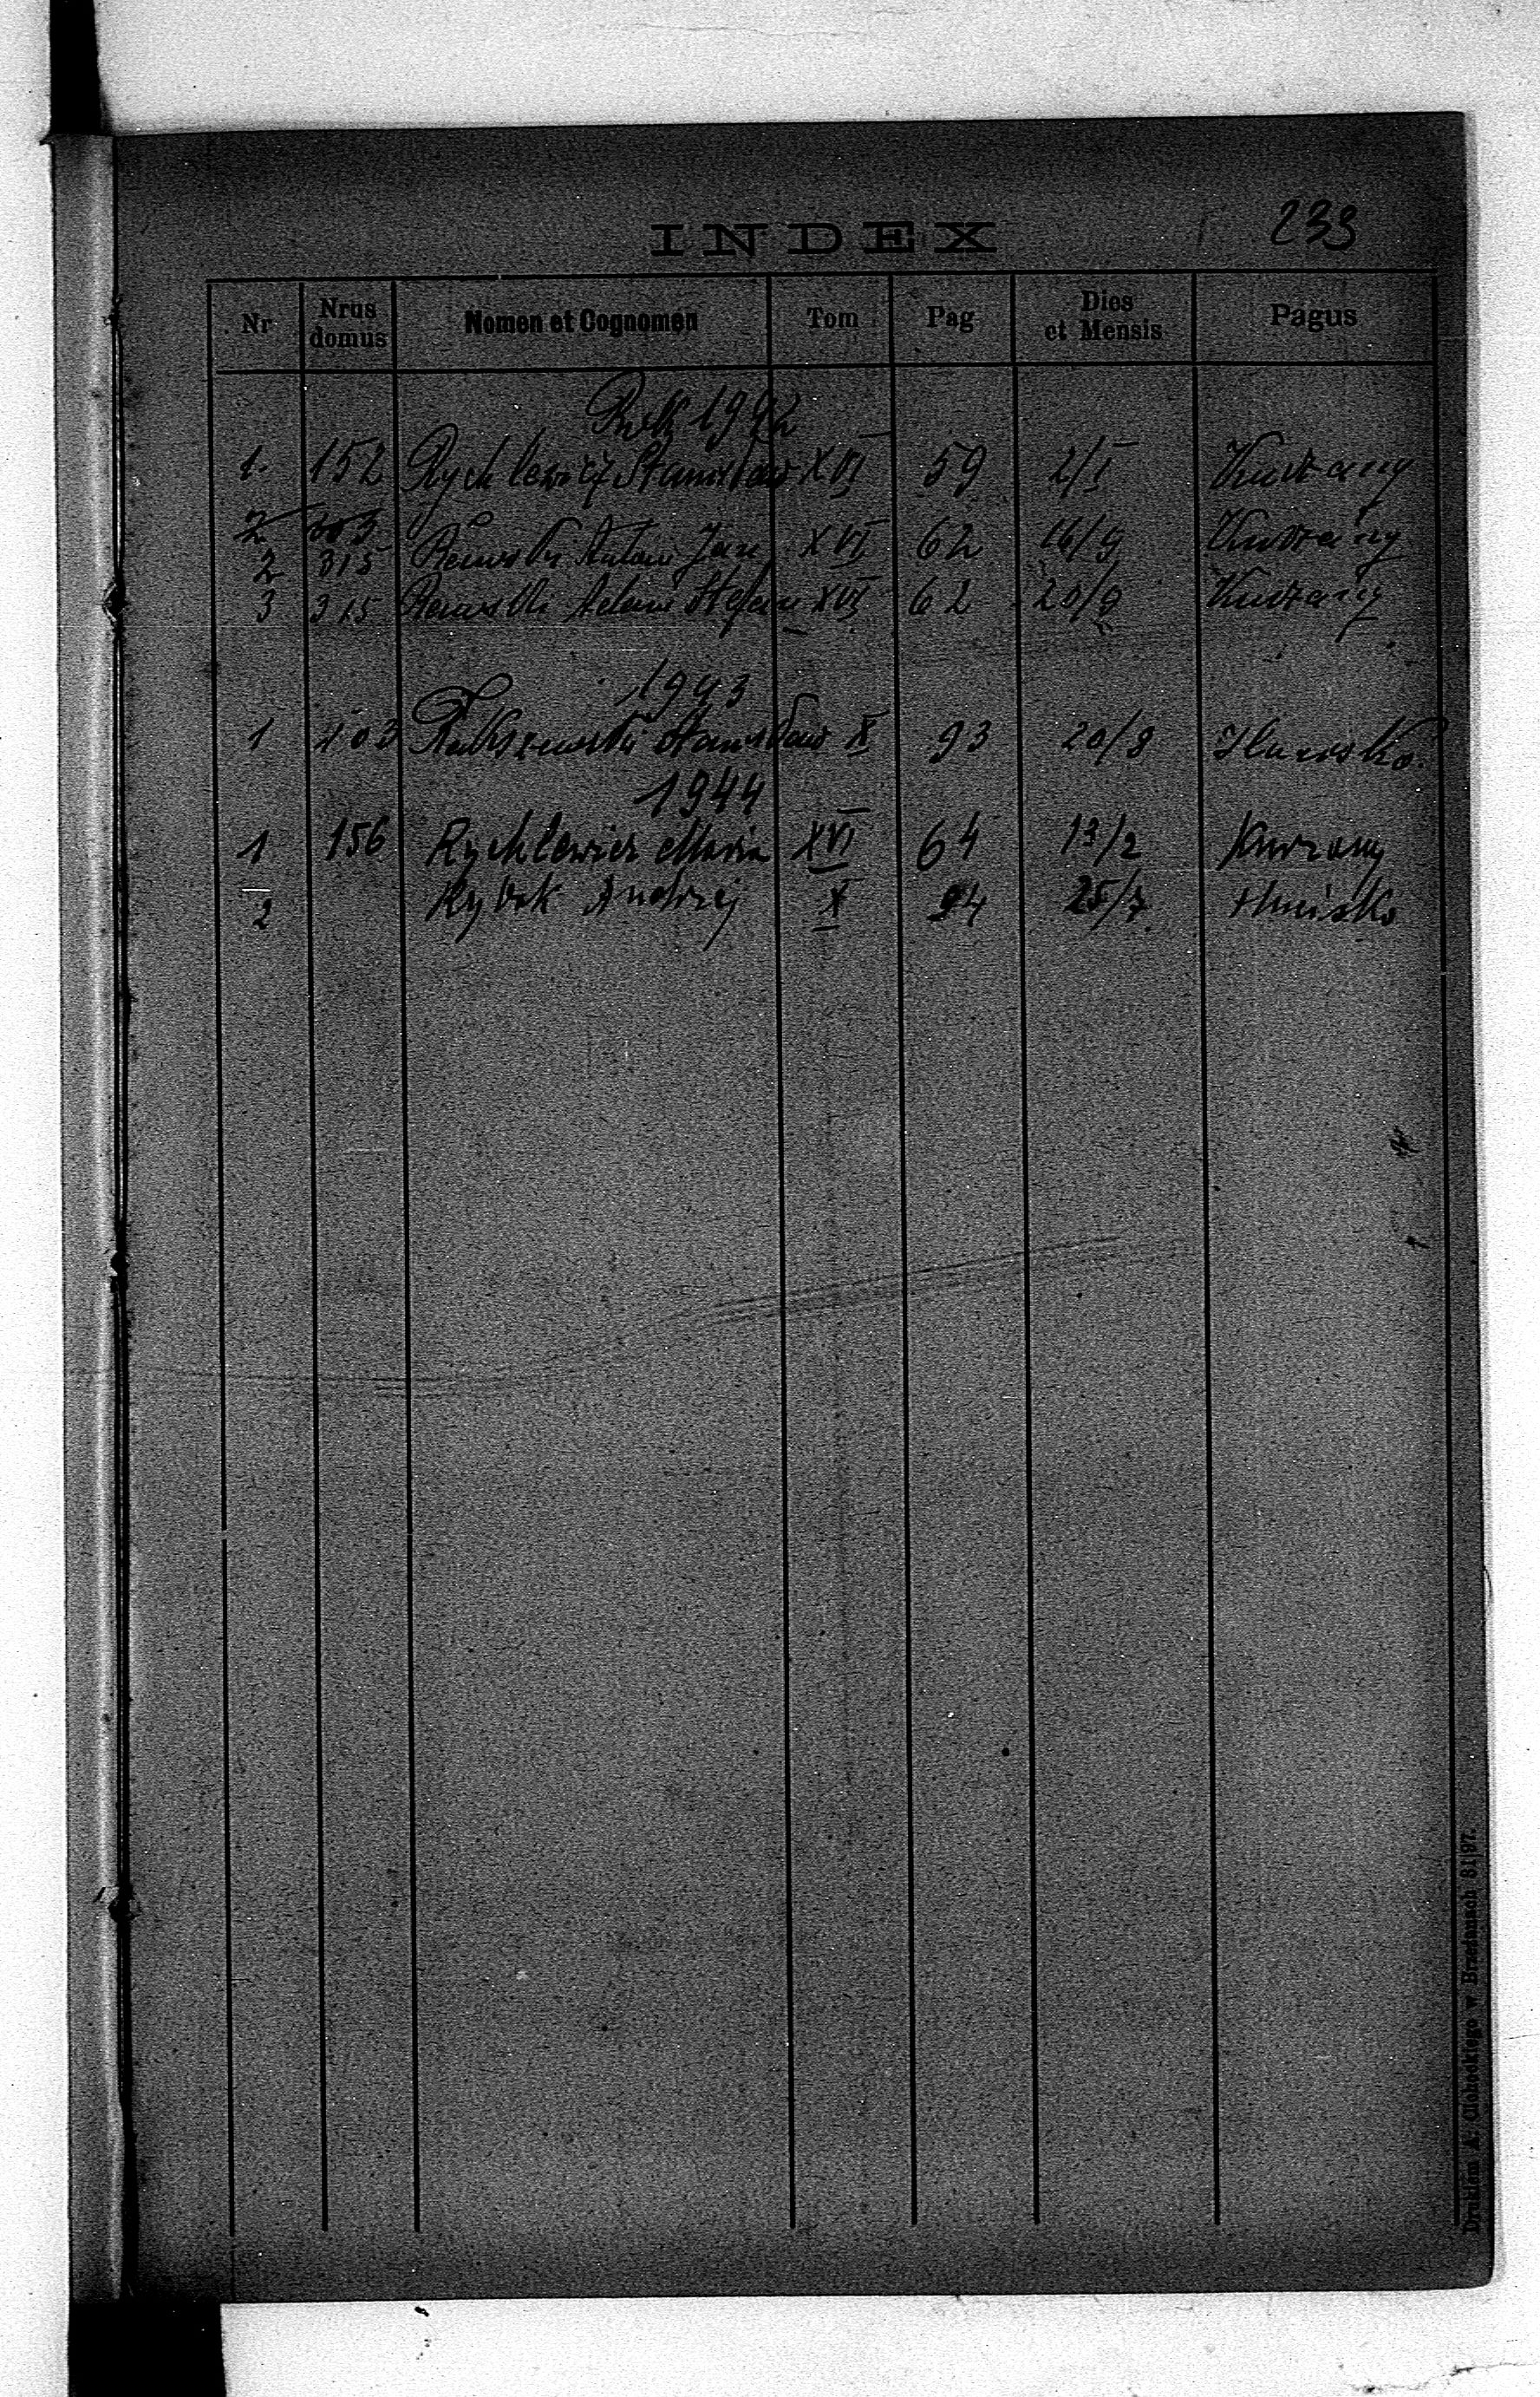 233
INDEX
Nr Nrus domus Nomen et Cognomen Tom Pag Dies et Mensis Pagus
Rok 1942
1. 152 Rychlewicz Stanisław XVI 59 2/I Kurzany
2 303
2 315 Jan XVI 62 16/9 Kurzany
3 315 Adam Stefan XVI 62 20/9 Kurzany
1943
1 103 Stanisław X 93 20/9
1944
1 156 Rychlewicz Maria XVI 64 13/2 Kurzany
2 Rybak Andrzej X 94 25/7
Drukiem A. Cichockiego w Brzeżanach 8197.